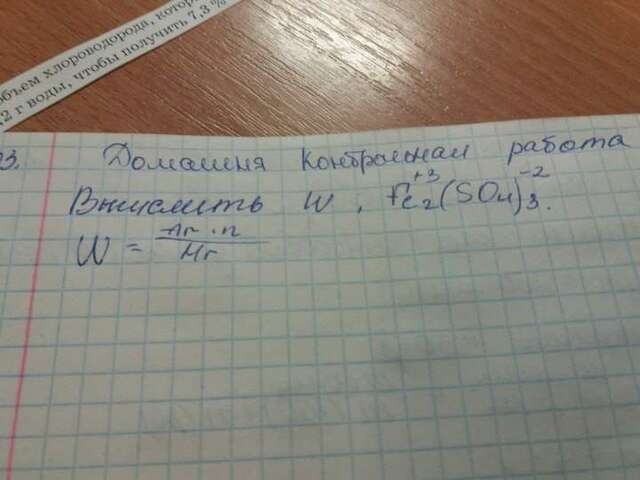 объем хлороводорода, котор
,2 г воды, чтобы получить 7,3 %
3. Домашня контрольная работа
Вычислить W, Fe₂⁺³(SO₄)₃⁻².
W = Ar · n / Mr